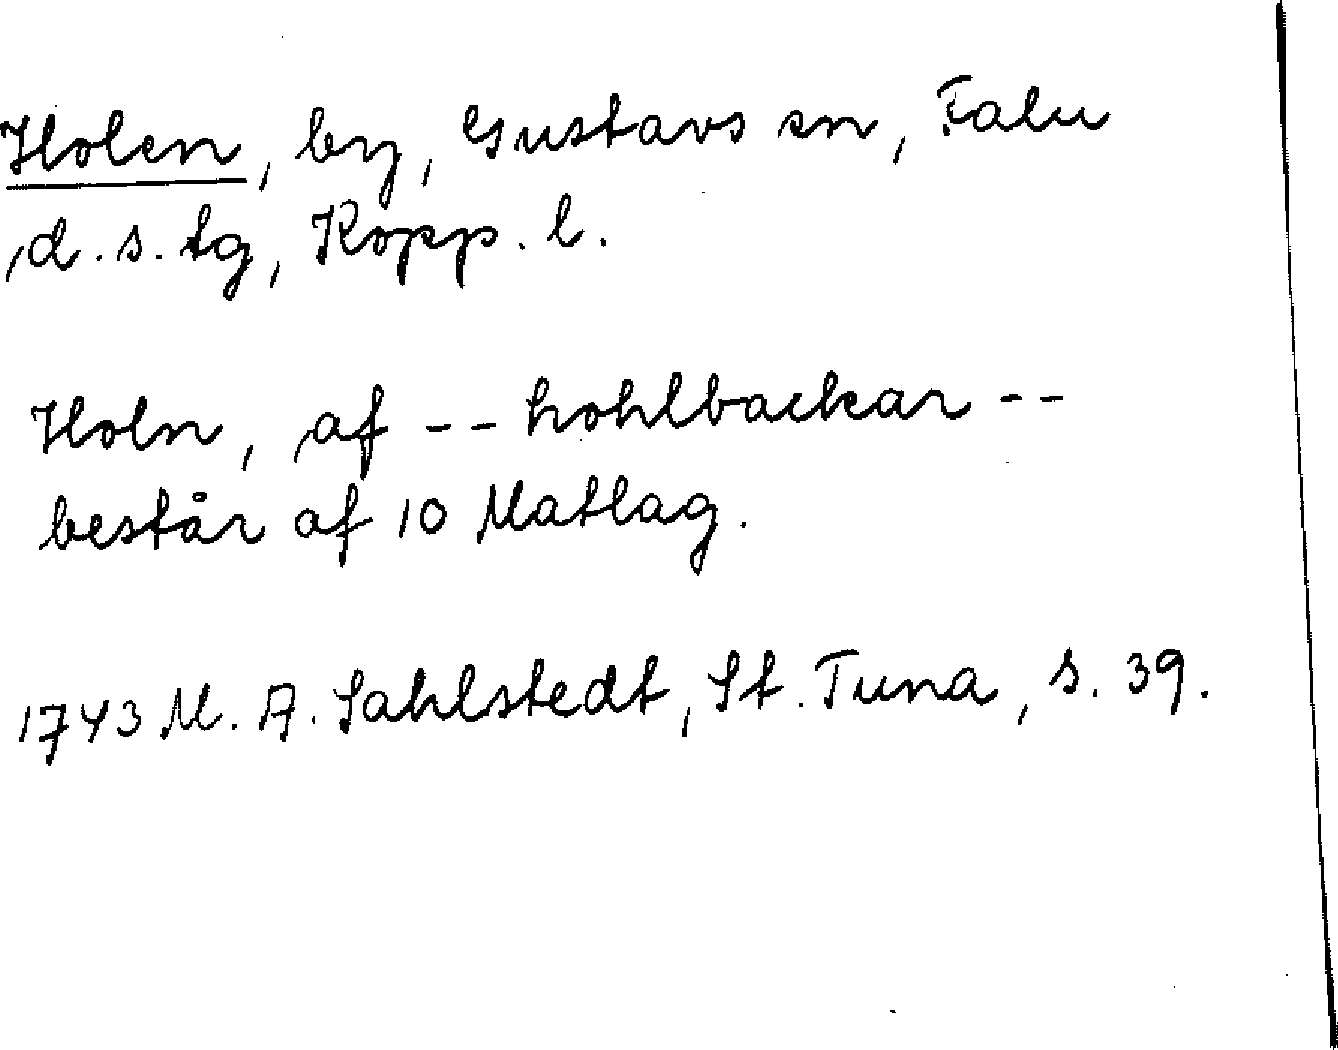 Holen, by, Gustavs sn, Falu
d. s. tg, Kopp. l.
Holn, af -- hohlbackar --
består af 10 Matlag.
1743 M. A. Sahlstedt, St. Tuna, s. 39.